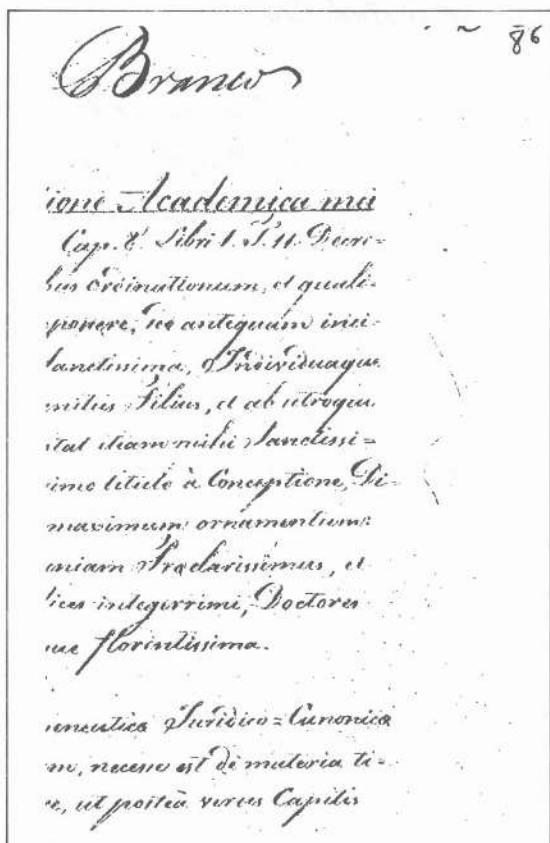 86
Branco
ione Academica mei
Cap. 8 Libri 1. T. 11. Decri-
bus Ordinationum, et quali-
ponere, sed antequam inci-
Sanctissima, Individuaque
nitus Filius, et ab utroque
itat etiam mihi Sanctissi=
imo titulo à Conceptione, Di-
maximum ornamentum:
oniam Praclarissimus, et
ices integerrimi, Doctores
que florentissima.
meneutica Juridico=Canonica
m, necesse est de materia ti-
re, ut posteà verus Capitis